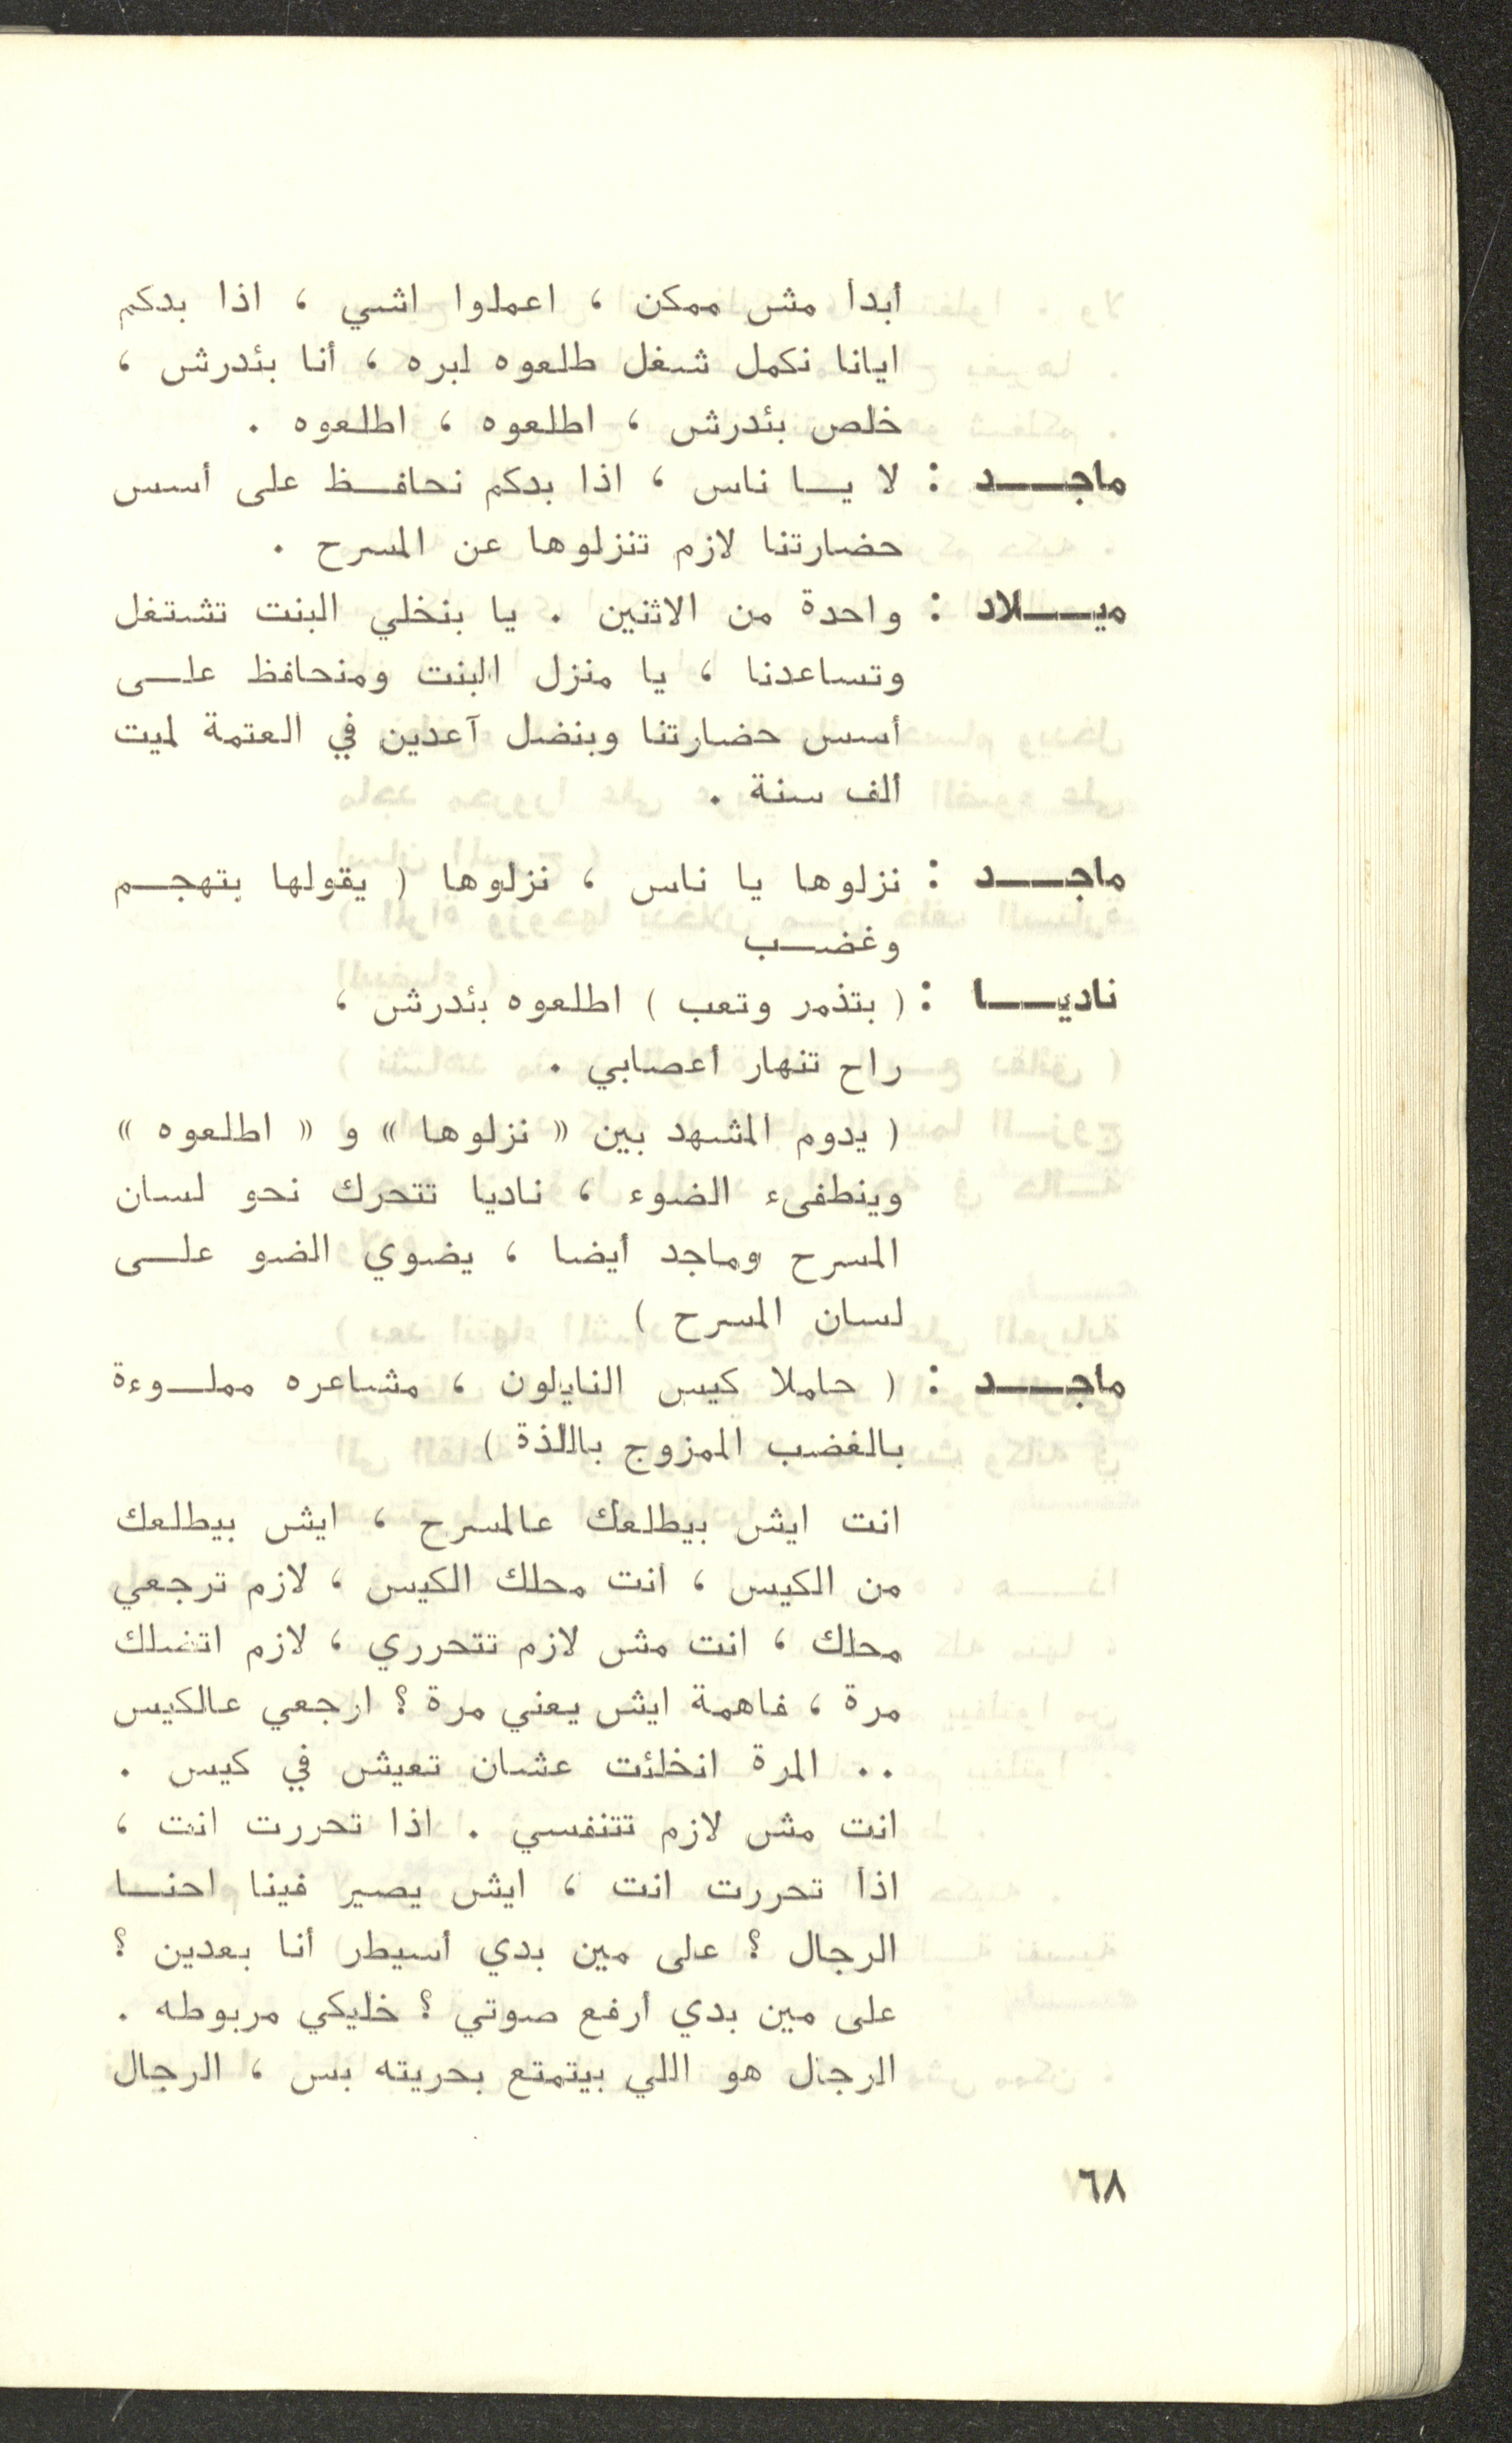 أبدا مش ممكن ، اعملوا اشي ، اذا بدكم
ايانا نكمل شغل طلعوه لبره ، أنا بئدرش ،
خلص بئدرش ، اطلعوه ، اطلعوه .
ماجـــد : لا يــا ناس ، اذا بدكم نحافــظ على أسس
حضارتنا لازم تنزلوها عن المسرح .
ميـــلاد : واحدة من الاثنين . يا بنخلي البنت تشتغل
وتساعدنا ، يا منزل البنت ومنحافظ علــى
أسس حضارتنا وبنضل آعدين في العتمة لميت
ألف سنة .
ماجـــد : نزلوها يا ناس ، نزلوها ( يقولها بتهجــم
وغضــب
ناديـــا : ( بتذمر وتعب ) اطلعوه بئدرش ،
راح تنهار أعصابي .
( يدوم المشهد بين « نزلوها » و « اطلعوه »
وينطفىء الضوء ، ناديا تتحرك نحو لسان
المسرح وماجد أيضا ، يضوي الضو علــى
لسان المسرح )
ماجـــد : ( حاملا كيس النايلون ، مشاعره مملــوءة
بالغضب الممزوج باللذة )
انت ايش بيطلعك عالمسرح ، ايش بيطلعك
من الكيس ، انت محلك الكيس ، لازم ترجعي
محلك ، انت مش لازم تتحرري ، لازم اتضلك
مرة ، فاهمة ايش يعني مرة ؟ ارجعي عالكيس
.. المرة انخلئت عشان تعيش في كيس .
انت مش لازم تتنفسي . اذا تحررت انت ،
اذا تحررت انت ، ايش يصير فينا احنــا
الرجال ؟ على مين بدي أسيطر أنا بعدين ؟
على مين بدي أرفع صوتي ؟ خليكي مربوطه .
الرجال هو اللي بيتمتع بحريته بس ، الرجال
٦٨